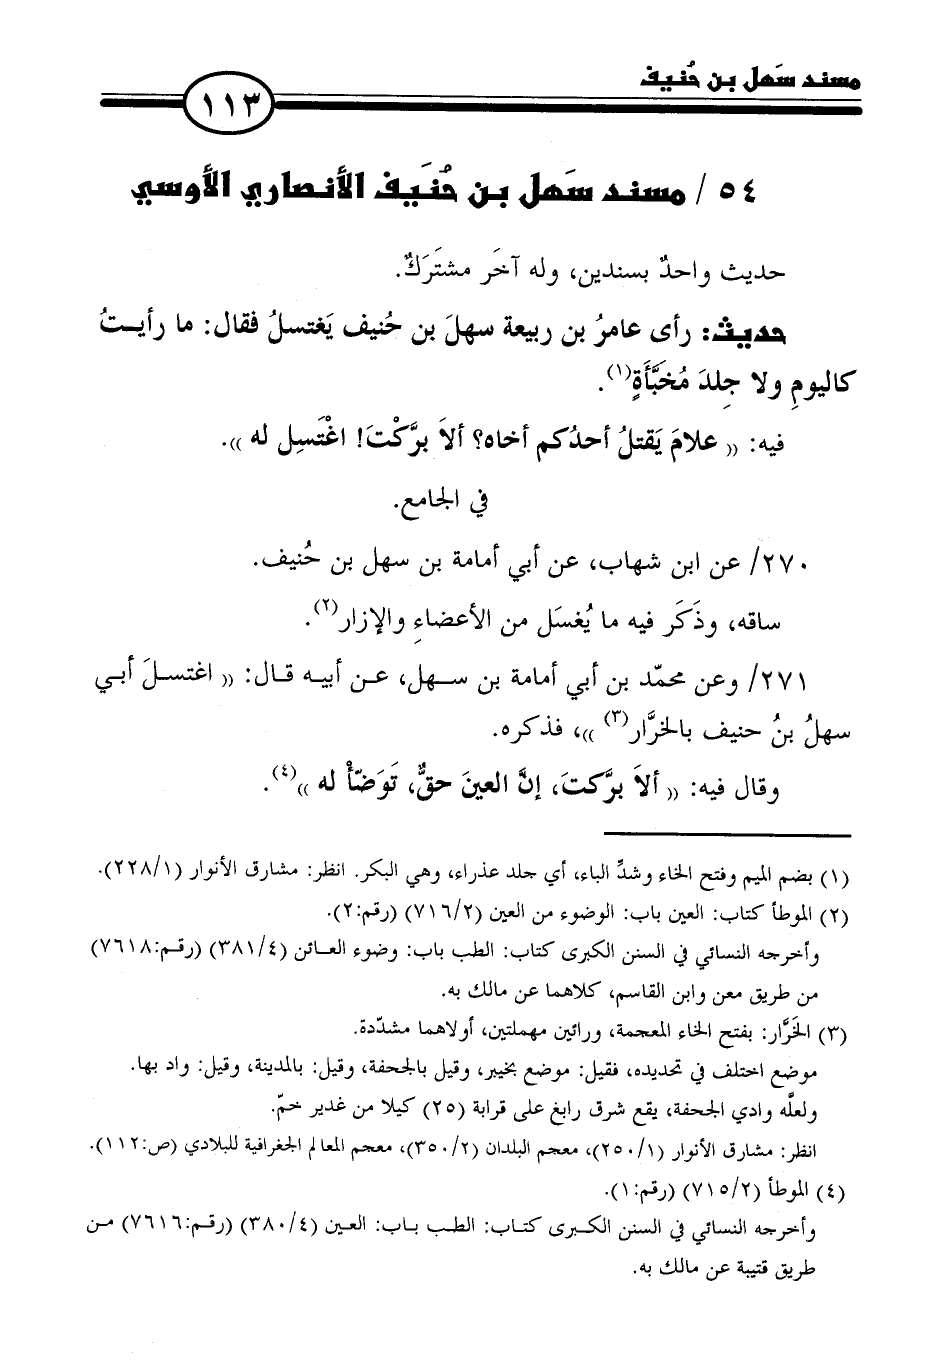 مسند سَهل بن حُنيف
١١٣
٥٤ / مسند سَهل بن حُنَيف الأنصاري الأوسي
حديث واحدٌ بسندين، وله آخَر مشتَرَكٌ.
حديث: رأى عامرُ بن ربيعة سهلَ بن حُنيف يَغتسلُ فقال: ما رأيـتُ
كاليومِ ولا جِلدَ مُخبَّأَةٍ(١).
فيه: « علامَ يَقتلُ أحدُكم أخاه؟ ألاَ برَّكْتَ! اغْتَسِل له ».
في الجامع.
٢٧٠/ عن ابن شهاب، عن أبي أمامة بن سهل بن حُنيف.
ساقه، وذَكَر فيه ما يُغسَل من الأعضاءِ والإزار(٢).
٢٧١/ وعن محمّد بن أبي أمامة بن سـهل، عـن أبيـه قـال: « اغتسـلَ أبـي
سهلُ بنُ حنيف بالخرَّار(٣) »، فذكره.
وقال فيه: « ألاَ برَّكتَ، إنَّ العينَ حقٌّ، تَوَضّأْ له »(٤).
(١) بضم الميم وفتح الخاء وشدِّ الباء، أي جلد عذراء، وهي البكر. انظر: مشارق الأنوار (٢٢٨/١).
(٢) الموطأ كتاب: العين باب: الوضوء من العين (٧١٦/٢) (رقم:٢).
وأخرجه النسائي في السنن الكبرى كتاب: الطب باب: وضوء العـائن (٣٨١/٤) (رقـم:٧٦١٨)
من طريق معن وابن القاسم، كلاهما عن مالك به.
(٣) الخَرَّار: بفتح الخاء المعجمة، ورائين مهملتين، أولاهما مشدّدة.
موضع اختلف في تحديده، فقيل: موضع بخيبر، وقيل بالجحفة، وقيل: بالمدينة، وقيل: واد بها.
ولعلَّه وادي الجحفة، يقع شرق رابغ على قرابة (٢٥) كيلا من غدير خمّ.
انظر: مشارق الأنوار (٢٥٠/١)، معجم البلدان (٣٥٠/٢)، معجم المعالم الجغرافية للبلادي (ص:١١٢).
(٤) الموطأ (٧١٥/٢) (رقم:١).
وأخرجه النسائي في السنن الكـبرى كتـاب: الطـب بـاب: العـين (٣٨٠/٤) (رقـم:٧٦١٦) مـن
طريق قتيبة عن مالك به.